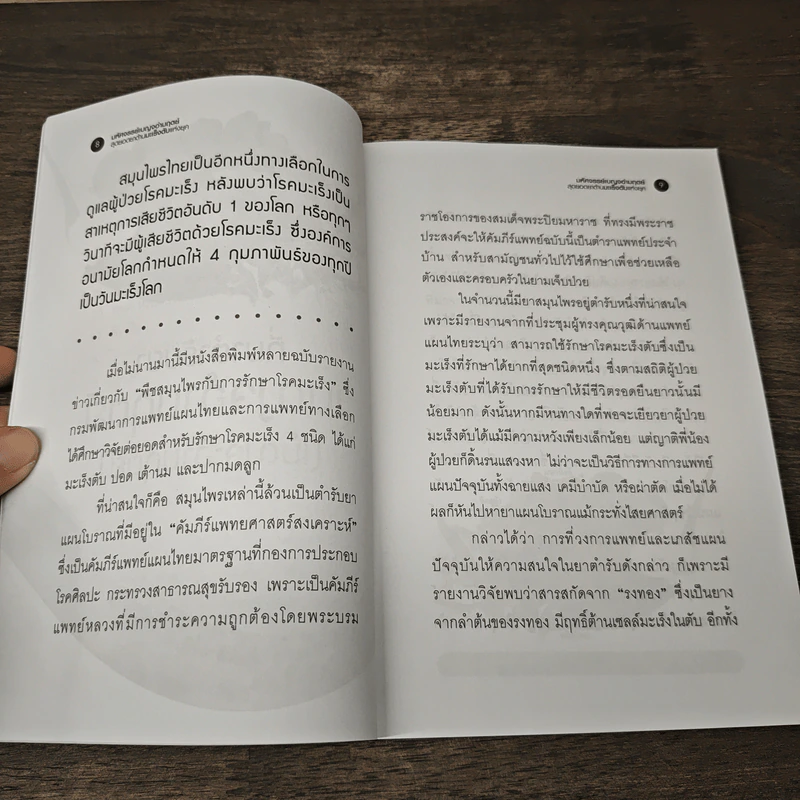 8
มหัศจรรย์เบญจอำมฤตย์
สุดยอดยาต้านมะเร็งตับแห่งยุค
สมุนไพรไทยเป็นอีกหนึ่งทางเลือกในการ
ดูแลผู้ป่วยโรคมะเร็ง หลังพบว่าโรคมะเร็งเป็น
สาเหตุการเสียชีวิตอันดับ 1 ของโลก หรือทุกๆ
วินาทีจะมีผู้เสียชีวิตด้วยโรคมะเร็ง ซึ่งองค์การ
อนามัยโลกกำหนดให้ 4 กุมภาพันธ์ของทุกปี
เป็นวันมะเร็งโลก
เมื่อไม่นานมานี้มีหนังสือพิมพ์หลายฉบับรายงาน
ข่าวเกี่ยวกับ “พืชสมุนไพรกับการรักษาโรคมะเร็ง” ซึ่ง
กรมพัฒนาการแพทย์แผนไทยและการแพทย์ทางเลือก
ได้ศึกษาวิจัยต่อยอดสำหรับรักษาโรคมะเร็ง 4 ชนิด ได้แก่
มะเร็งตับ ปอด เต้านม และปากมดลูก
ที่น่าสนใจก็คือ สมุนไพรเหล่านี้ล้วนเป็นตำรับยา
แผนโบราณที่มีอยู่ใน “คัมภีร์แพทยศาสตร์สงเคราะห์”
ซึ่งเป็นคัมภีร์แพทย์แผนไทยมาตรฐานที่กองการประกอบ
โรคศิลปะ กระทรวงสาธารณสุขรับรอง เพราะเป็นคัมภีร์
แพทย์หลวงที่มีการชำระความถูกต้องโดยพระบรม
มหัศจรรย์เบญจอำมฤตย์
สุดยอดยาต้านมะเร็งตับแห่งยุค
9
ราชโองการของสมเด็จพระปิยมหาราช ที่ทรงมีพระราช
ประสงค์จะให้คัมภีร์แพทย์ฉบับนี้เป็นตำราแพทย์ประจำ
บ้าน สำหรับสามัญชนทั่วไปไว้ใช้ศึกษาเพื่อช่วยเหลือ
ตัวเองและครอบครัวในยามเจ็บป่วย
ในจำนวนนี้มียาสมุนไพรอยู่ตำรับหนึ่งที่น่าสนใจ
เพราะมีรายงานจากที่ประชุมผู้ทรงคุณวุฒิด้านแพทย์
แผนไทยระบุว่า สามารถใช้รักษาโรคมะเร็งตับซึ่งเป็น
มะเร็งที่รักษาได้ยากที่สุดชนิดหนึ่ง ซึ่งตามสถิติผู้ป่วย
มะเร็งตับที่ได้รับการรักษาให้มีชีวิตรอดยืนยาวนั้นมี
น้อยมาก ดังนั้นหากมีหนทางใดที่พอจะเยียวยาผู้ป่วย
มะเร็งตับได้แม้มีความหวังเพียงเล็กน้อย แต่ญาติพี่น้อง
ผู้ป่วยก็ดิ้นรนแสวงหา ไม่ว่าจะเป็นวิธีการทางการแพทย์
แผนปัจจุบันทั้งฉายแสง เคมีบำบัด หรือผ่าตัด เมื่อไม่ได้
ผลก็หันไปหายาแผนโบราณแม้กระทั่งไสยศาสตร์
กล่าวได้ว่า การที่วงการแพทย์และเภสัชแผน
ปัจจุบันให้ความสนใจในยาตำรับดังกล่าว ก็เพราะมี
รายงานวิจัยพบว่าสารสกัดจาก “รงทอง” ซึ่งเป็นยาง
จากลำต้นของรงทอง มีฤทธิ์ต้านเซลล์มะเร็งในตับ อีกทั้ง